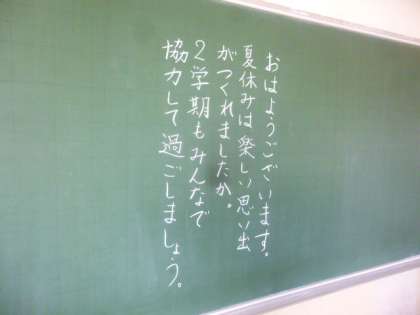 おはようございます。
夏休みは楽しい思い出
がつくれましたか。
2学期もみんなで
協力して過ごしましょう。